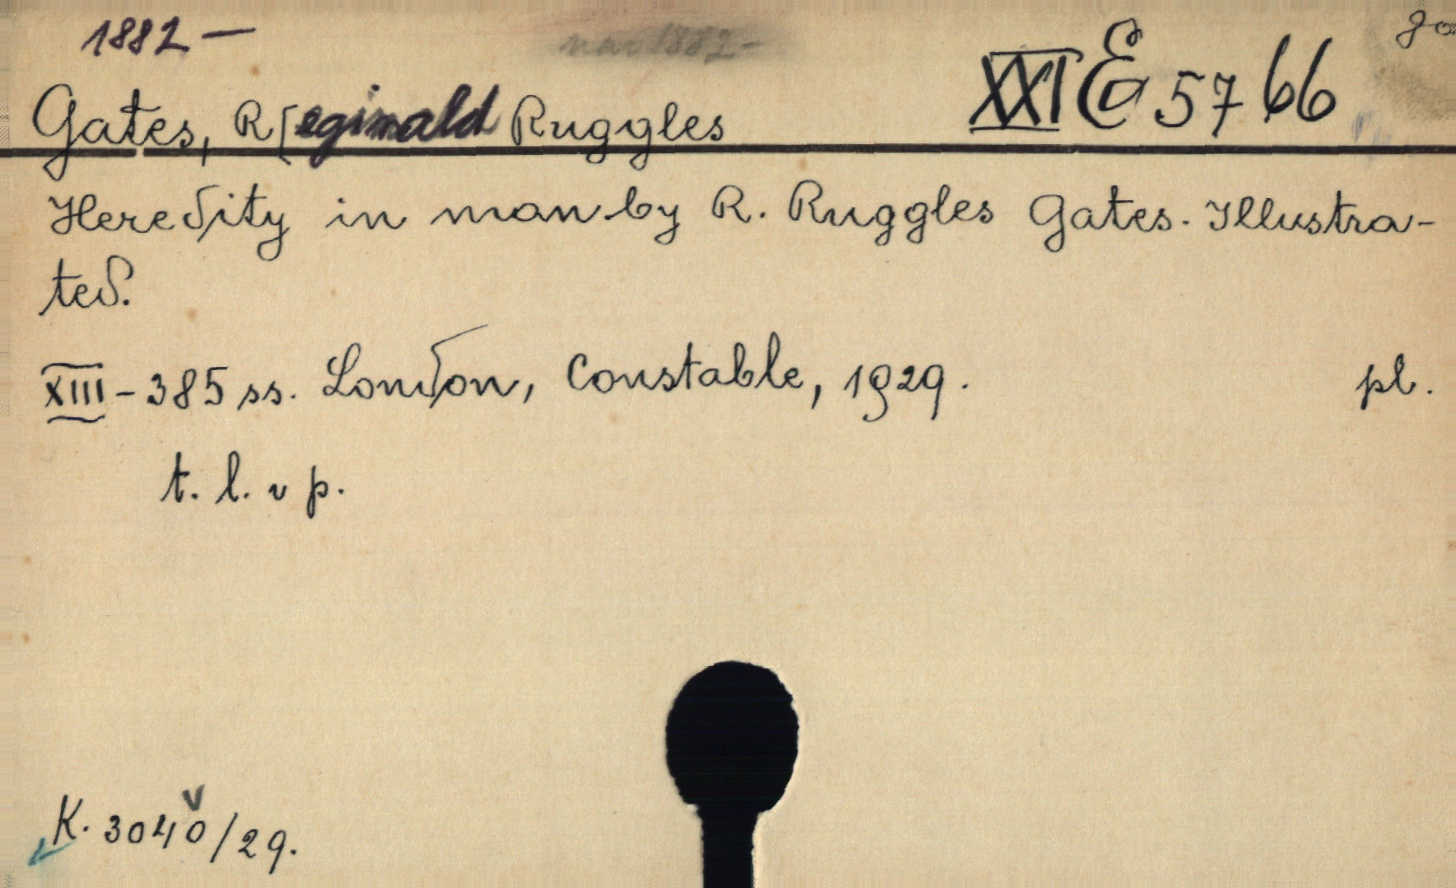 1882 —
nar 1882 -
XXI E 5766
Gates, R[eginald Ruggles
Heredity in man by R. Ruggles Gates. Illustra-
ted.
XIII - 385 ss. London, Constable, 1929. pl.
t. l. v p.
K. 3040/29.